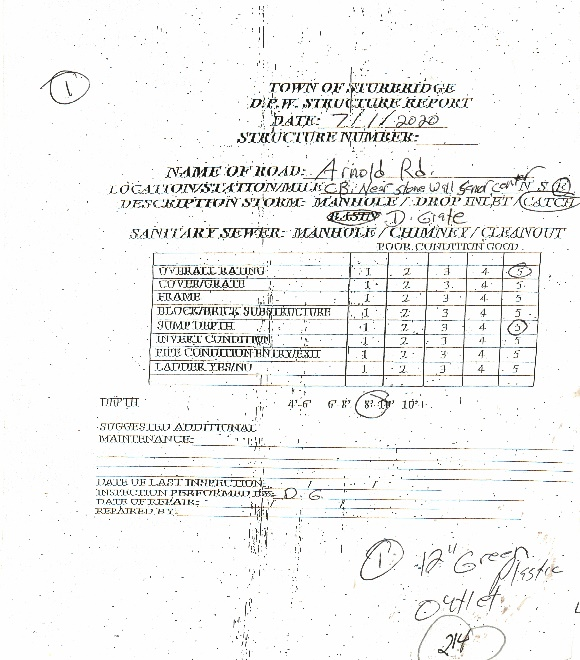 1
TOWN OF STURBRIDGE
D.P.W. STRUCTURE REPORT
DATE: 7/1/2020
STRUCTURE NUMBER:
NAME OF ROAD: Arnold Rd.
LOCATION/STATION/MILE C.B. Near stone wall N S E
DESCRIPTION STORM: MANHOLE / DROP INLET / CATCH
BASIN D. Grate
SANITARY SEWER: MANHOLE / CHIMNEY / CLEANOUT
POOR CONDITION GOOD
OVERALL RATING 1 2 3 4 5
COVER/GRATE 1 2 3 4 5
FRAME 1 2 3 4 5
BLOCK/BRICK SUBSTRUCTURE 1 2 3 4 5
SUMP DEPTH 1 2 3 4 5
INVERT CONDITION 1 2 3 4 5
PIPE CONDITION ENTRY/EXIT 1 2 3 4 5
LADDER YES/NO 1 2 3 4 5
DEPTH 4'-6' 6'-8' 8'-10' 10'+
SUGGESTED ADDITIONAL
MAINTENANCE:
DATE OF LAST INSPECTION
INSPECTION PERFORMED BY: D.G
DATE OF REPAIR:
REPAIRED BY:
1 12" Green
Plastic
Outlet
214